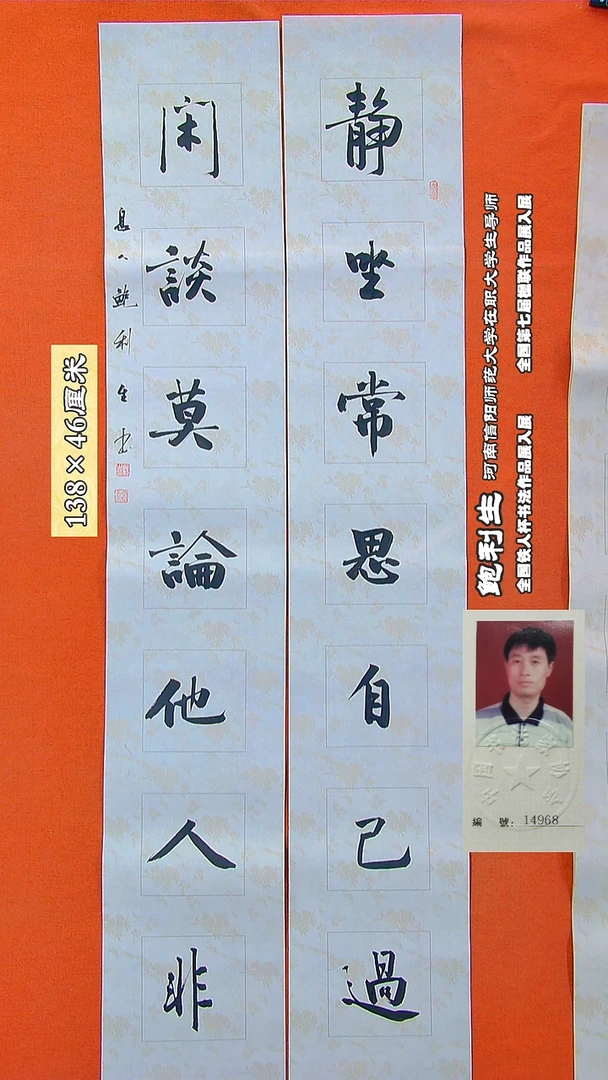 静坐常思自己過
闲談莫論他人非
息人鲍利生书
138×46厘米
鲍利生 河南信阳师范大学在职大学生导师
全国铁人杯书法作品展入展 全国第七届楹联作品展入展
編 號: 14968